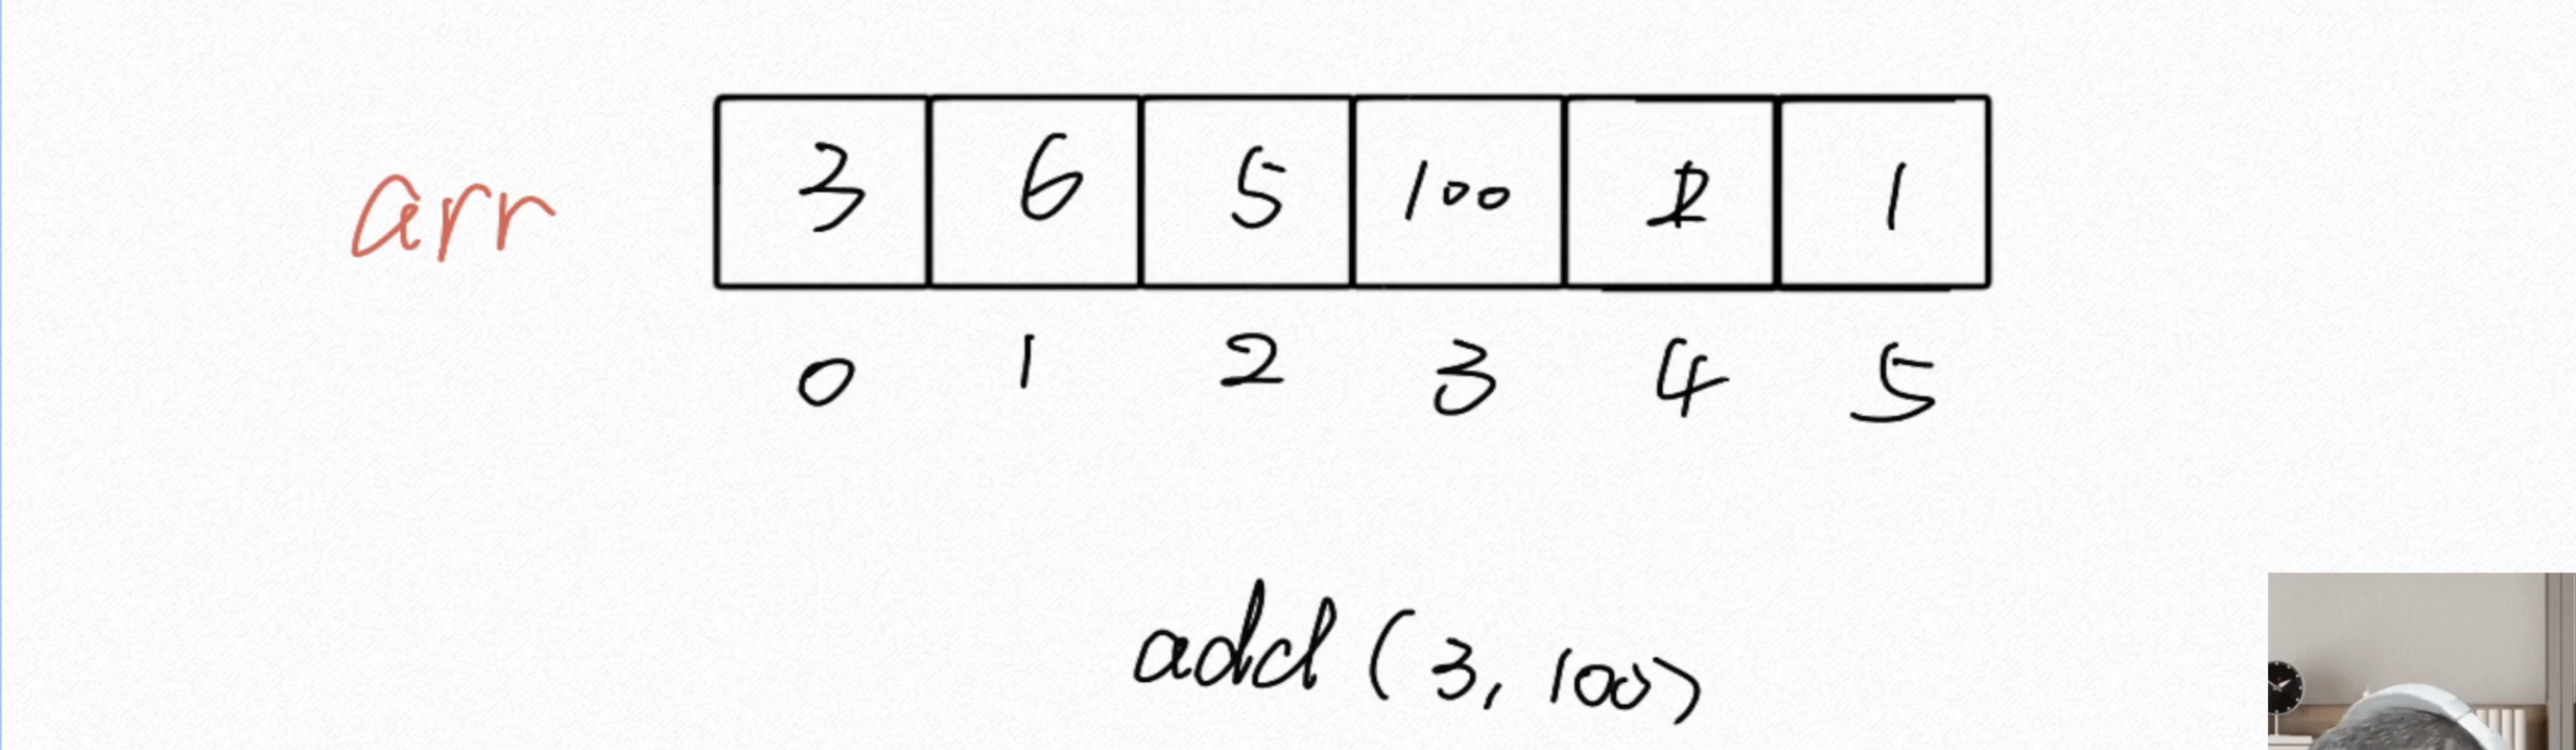 arr 3 6 5 100 1
0 1 2 3 4 5
add (3, 100)